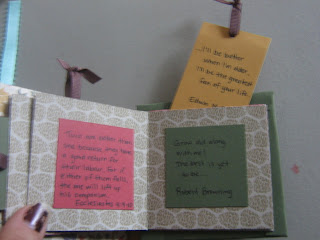 ...I'll be another
when I'm older,
I'll be the greatest
fan of your life.
Edwin
Two are better than
one because they have
a good return for
their labour. For if
either of them falls,
the one will lift up
his companion.
Ecclesiastes 4:9,10
Grow old along
with me!
The best is yet
to be...
Robert Browning